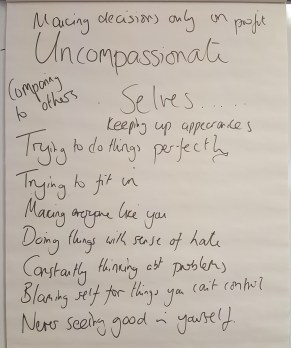 Making decisions only on profit
Uncompassionate
Comparing
to others
Selves.....
Keeping up appearances
Trying to do things perfectly
Trying to fit in
Making everyone like you
Doing things with sense of hate
Constantly thinking abt problems
Blaming self for things you can't control
Never seeing good in yourself.